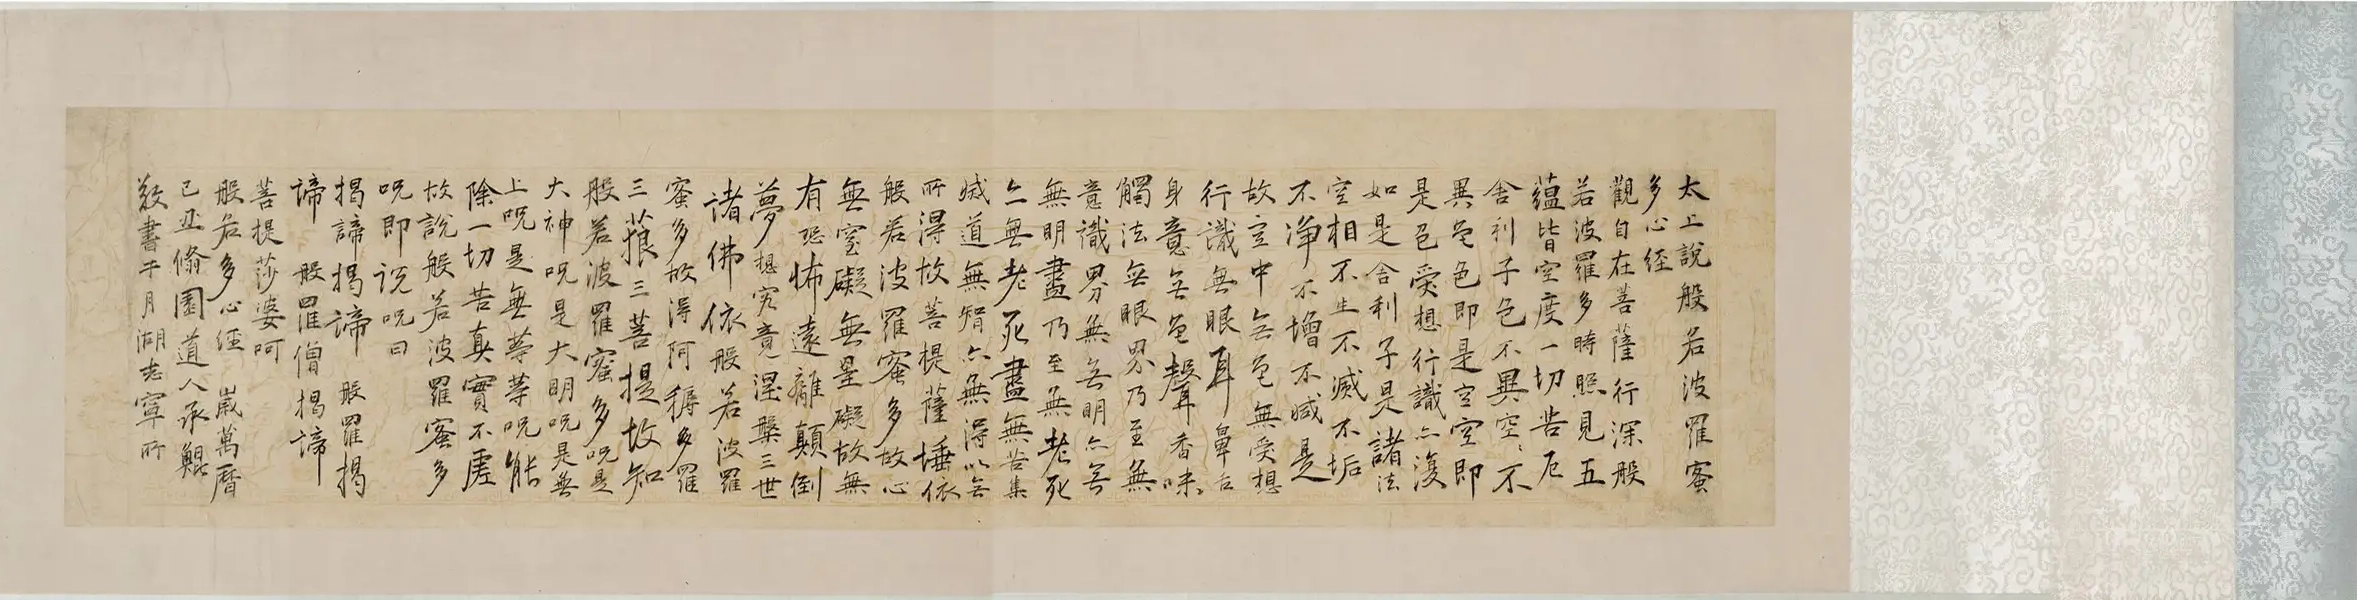 太上說般若波羅蜜
多心経
觀自在菩薩行深般
若波羅多時照見五
蘊皆空度一切苦厄
舍利子色不異空〻不
異色色即是空空即
是色受想行識亦復
如是舍利子是諸法
空相不生不滅不垢
不净不增不减是
故空中無色無受想
行識無眼耳鼻舌
身意無色聲香味
觸法無眼界乃至無
意識界無無明亦無
無明盡乃至無老死
亦無老死盡無苦集
滅道無智亦無得以無
所得故菩提薩埵依
般若波羅蜜多故心
無罣礙無罣礙故無
有恐怖遠離顛倒
夢想究竟涅槃三世
諸佛依般若波羅
蜜多故得阿耨多羅
三藐三菩提故知
般若波羅蜜多呪是
大神呪是大明呪是無
上呪是無等等呪能
除一切苦真實不虛
故說般若波羅蜜多
呪即說呪曰
揭諦揭諦 般羅揭
諦 般羅僧揭諦
菩提莎婆呵
般若多心經 歲萬曆
己丑脩園道人承鯤
敬書于月湖志寧所